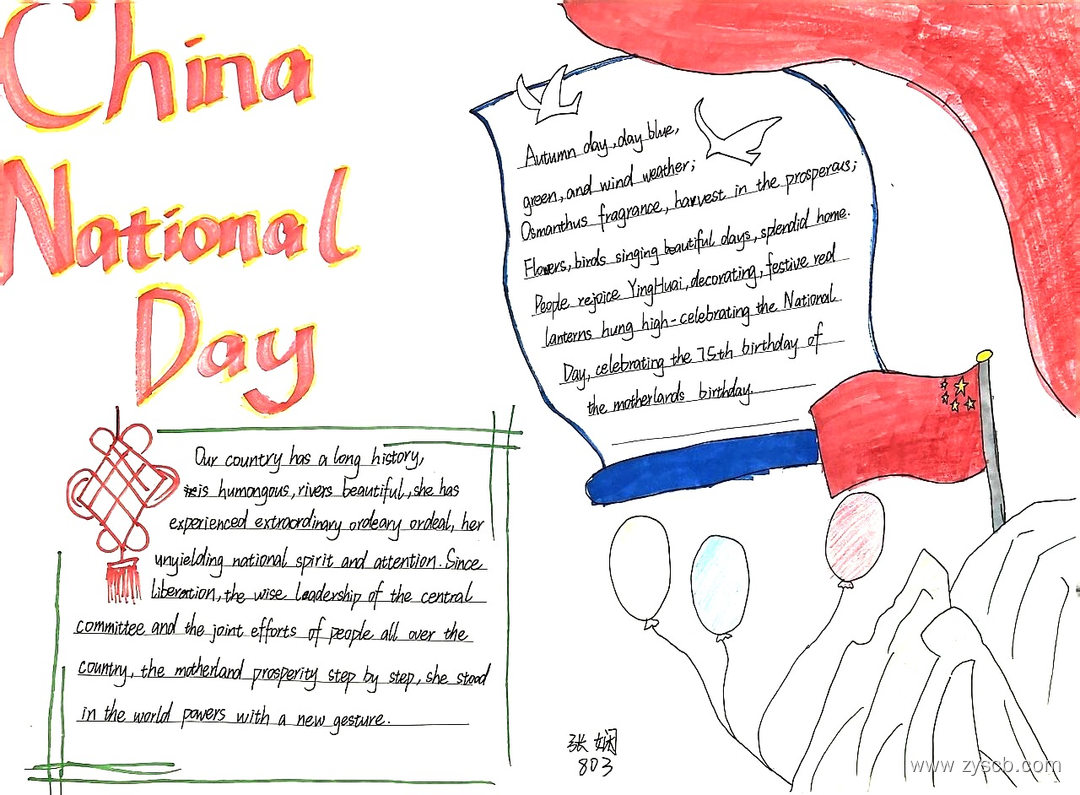 China
National
Day
Autumn day, day blue,
green, and wind weather;
Osmanthus fragrance, harvest in the prosperous;
Flowers, birds singing beautiful days, splendid home.
People rejoice YingHuai, decorating, festive red
lanterns hung high-celebrating the National
Day, celebrating the 75th birthday of
the motherlands birthday.
Our country has a long history,
is humongous, rivers beautiful, she has
experienced extraordinary ordeary ordeal, her
unyielding national spirit and attention. Since
liberation, the wise leadership of the central
committee and the joint efforts of people all over the
country, the motherland prosperity step by step, she stood
in the world powers with a new gesture.
张娴
803
www.zyscb.com